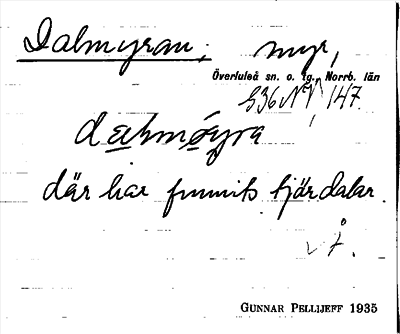 Dalmyran, myr,
Överluleå sn. o. tg., Norrb. län
S36 NV, 147.
dalmöyra
där har funnits tjärdalar.
GUNNAR PELLIJEFF 1935